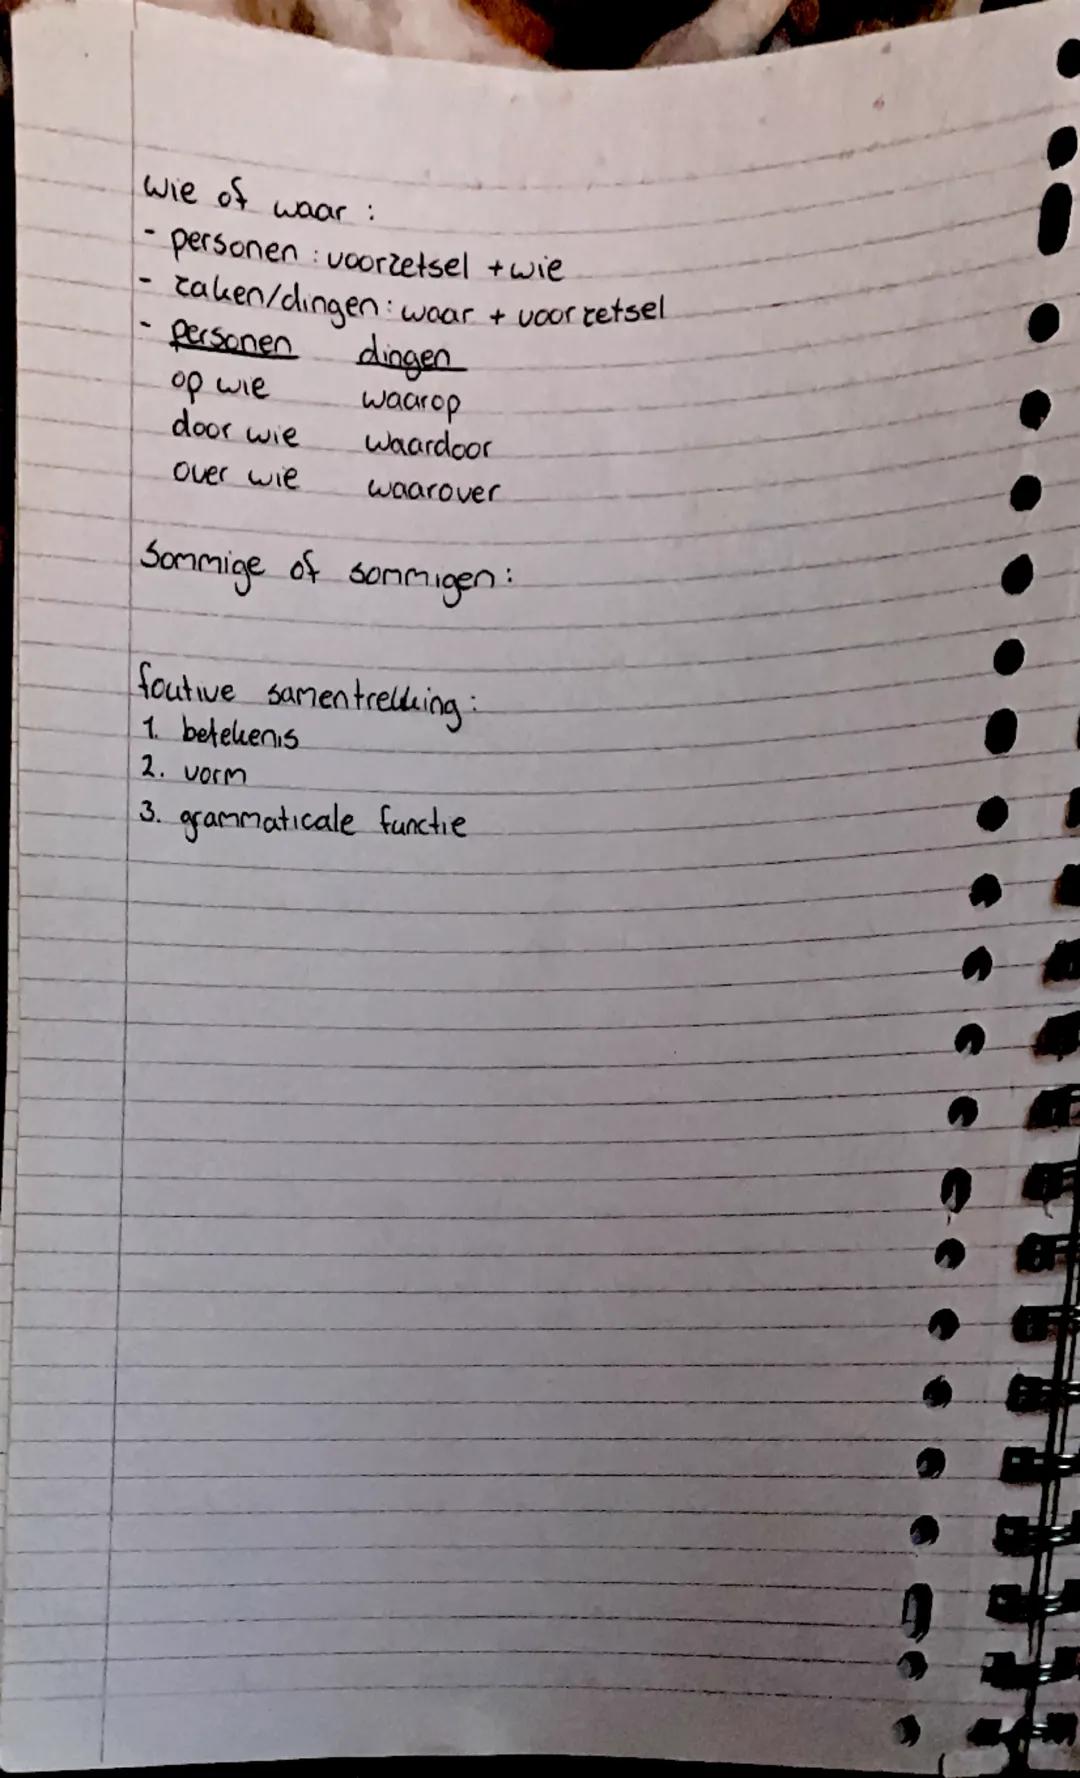 wie of waar :
- personen : voorzetsel + wie
- zaken/dingen : waar + voorzetsel
- personen dingen
op wie waarop
door wie waardoor
over wie waarover
Sommige of sommigen :
foutive samentrekking :
1. betekenis
2. vorm
3. grammaticale functie